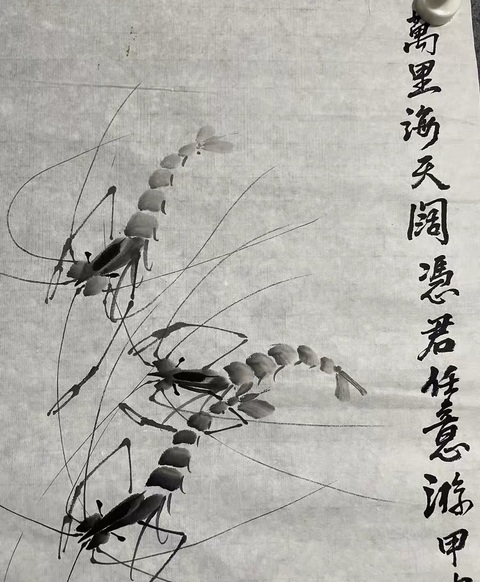 萬里海天闊憑君任意游甲